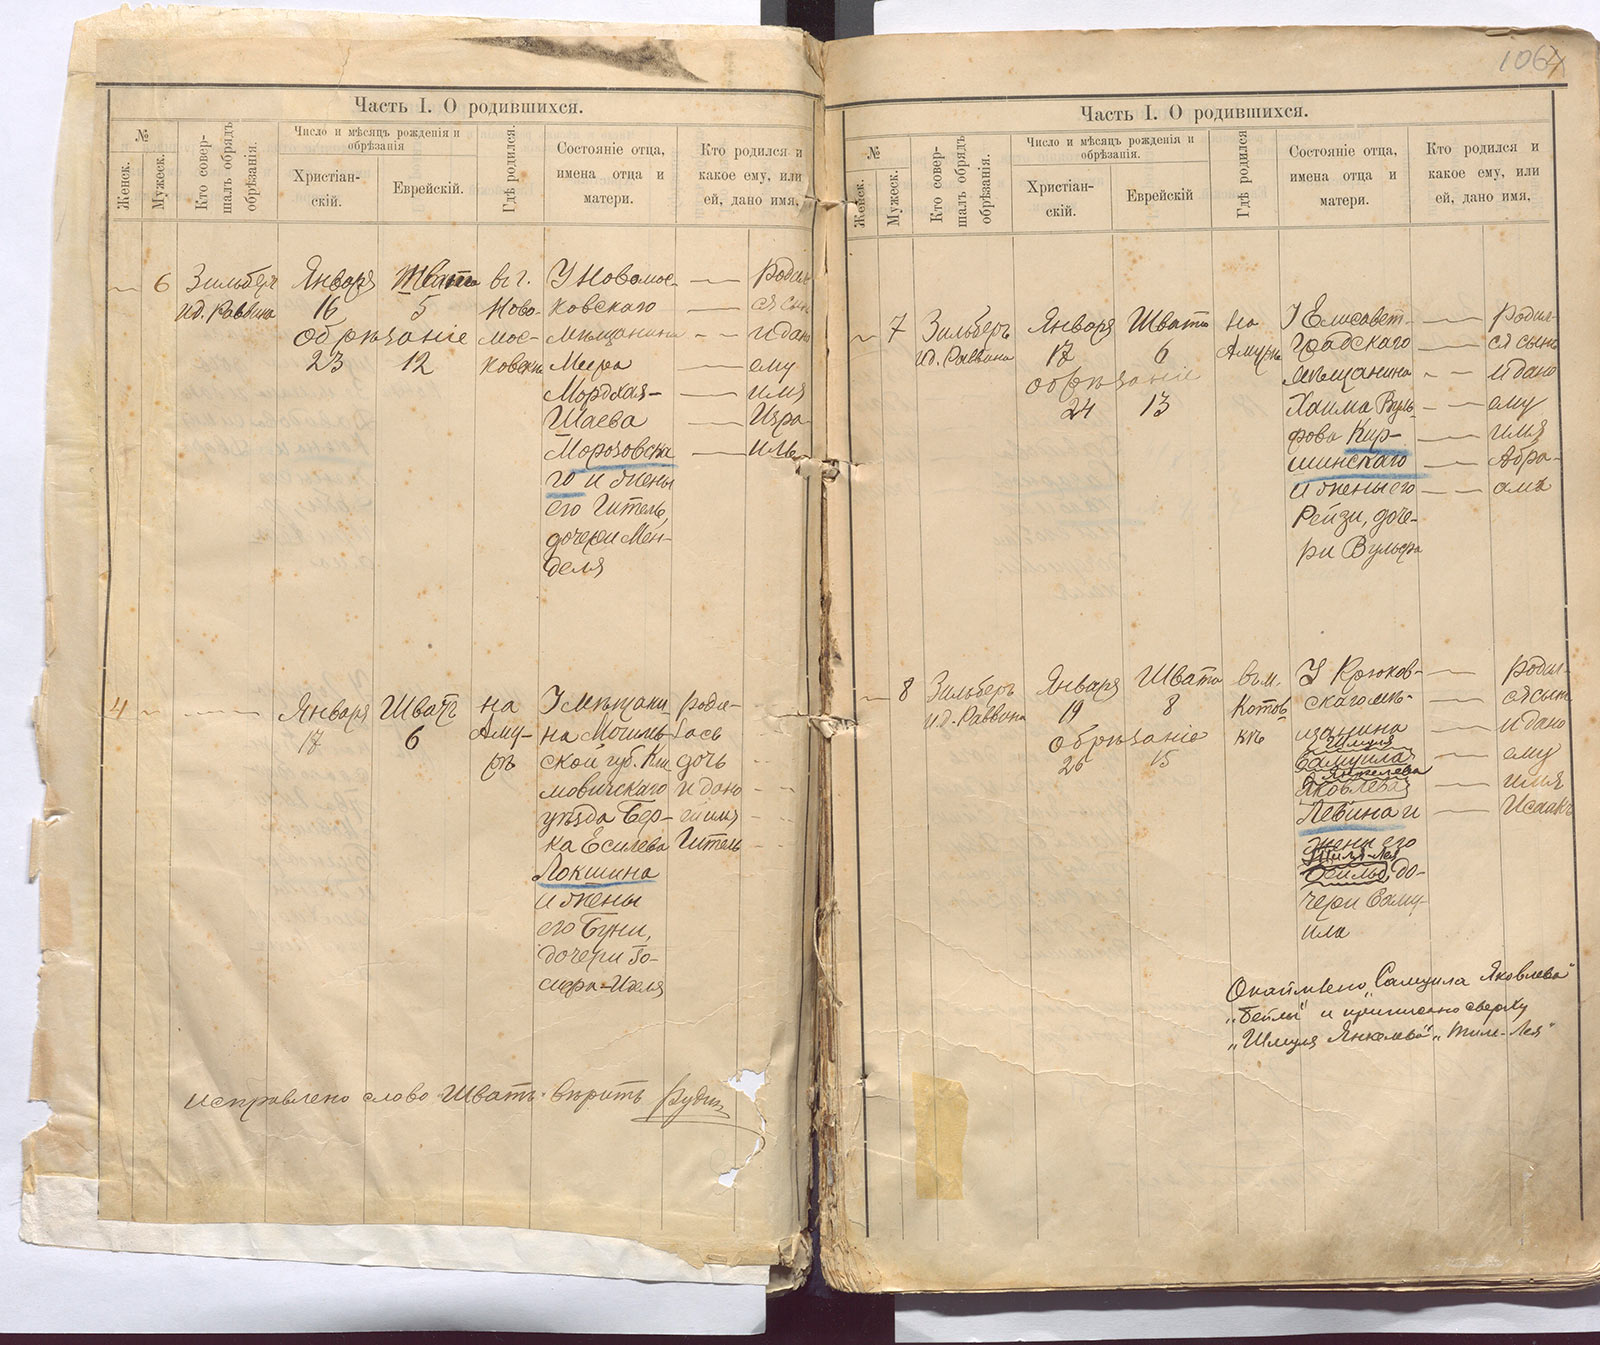 Часть I. О родившихся.
№
Женск.
Мужеск.
Кто совер-
шалъ обрядъ
обрѣзанія.
Число и мѣсяцъ рожденія и
обрѣзанія
Христіан-
скій.
Еврейскій.
Гдѣ родился.
Состояніе отца,
имена отца и
матери.
Кто родился и
какое ему, или
ей, дано имя.
6
Зильберъ
и д. Раввина
Января
16
Обрѣзаніе
23
Шватъ
5
12
въ г.
Ново-
мос-
ковскѣ
У Новомос-
ковскаго
мѣщанина
Меера
Мордхая-
Шаева
Морозовска
го и жены
его Гитель,
дочери Мен-
деля
родил-
ся сынъ
и дано
ему
имя
Изра-
иль
4
Января
17
Шватъ
6
на
Аму-
рѣ
У мѣщани
на Могилев
ской губ. Кли
мовичскаго
уѣзда Бер-
ка Есилева
Локшина
и жены
его Буни,
дочери Іо-
сифа-Иделя
роди-
лась
дочь
и дано
ей имя
Гитель
исправлено слово "Шватъ" вѣрить
1064
Часть I. О родившихся.
№
Женск.
Мужеск.
Кто совер-
шалъ обрядъ
обрѣзанія.
Число и мѣсяцъ рожденія и
обрѣзанія.
Христіан-
скій.
Еврейскій
Гдѣ родился
Состояніе отца,
имена отца и
матери.
Кто родился и
какое ему, или
ей, дано имя,
7
Зильберъ
и д. Раввина
Января
17
обрѣзаніе
24
Швата
6
13
на
Амурѣ
У Елисавет-
градскаго
мѣщанина
Хаима Вуль-
фова Кир-
шинскаго
и жены его
Рейзи, доче-
ри Вульфа
родил-
ся сынъ
и дано
ему
имя
Абра-
амъ
8
Зильберъ
и д. Раввина
Января
19
Обрѣзаніе
26
Швата
8
15
въ м.
Котов-
кѣ
У Крюков-
скаго мѣ-
щанина
Шмуля
Самуила
Янкелева
Яковлева
Левина и
жены его
Тили-Леи
Бейлы, до-
чери Саму-
ила
родил-
ся сынъ
и дано
ему
имя
Исаакъ
Окаймлено „Самуила Яковлева"
„Бейлы" и приписано сверху
„Шмуля Янкелева" „Тили-Леи"